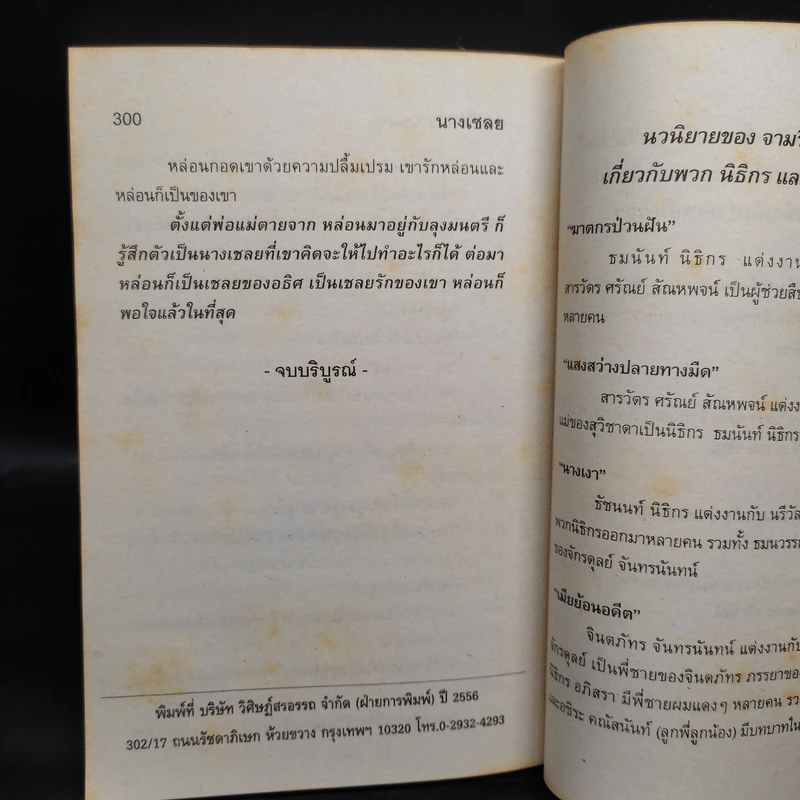 300
นางเชลย
หล่อนกอดเขาด้วยความปลื้มเปรม เขารักหล่อนและ
หล่อนก็เป็นของเขา
ตั้งแต่พ่อแม่ตายจาก หล่อนมาอยู่กับลุงมนตรี ก็
รู้สึกตัวเป็นนางเชลยที่เขาคิดจะให้ไปทำอะไรก็ได้ ต่อมา
หล่อนก็เป็นเชลยของอธิศ เป็นเชลยรักของเขา หล่อนก็
พอใจแล้วในที่สุด
- จบบริบูรณ์ -
พิมพ์ที่ บริษัท วิศิษฎ์สรอรรถ จำกัด (ฝ่ายการพิมพ์) ปี 2556
302/17 ถนนรัชดาภิเษก ห้วยขวาง กรุงเทพฯ 10320 โทร.0-2932-4293
นวนิยายของ
เกี่ยวกับพวก นิธิกร
"ฆาตกรป่วนฝัน"
ธมนันท์ นิธิกร แต่งงาน
สารวัตร ศรัณย์ สัณหพจน์ เป็นผู้ช่วย
หลายคน
"แสงสว่างปลายทางมืด"
สารวัตร ศรัณย์ สัณหพจน์
แม่ของสุวิชาดาเป็นนิธิกร ธมนันท์ นิธิกร
"นางเงา"
ธัชนนท์ นิธิกร แต่งงานกับ
พวกนิธิกรออกมาหลายคน รวมทั้ง
ของจักรดุลย์ จันทรนันทน์
"เมียย้อนอดีต"
จินตภัทร จันทรนันทน์ แต่งงานกับ
จักรดุลย์ เป็นพี่ชายของจินตภัทร
นิธิกร อภิสรา มีพี่ชายผมแดงๆ หลายคน
และอธิระ คณัสนันท์ (ลูกพี่ลูกน้อง) มีบทบาทใน